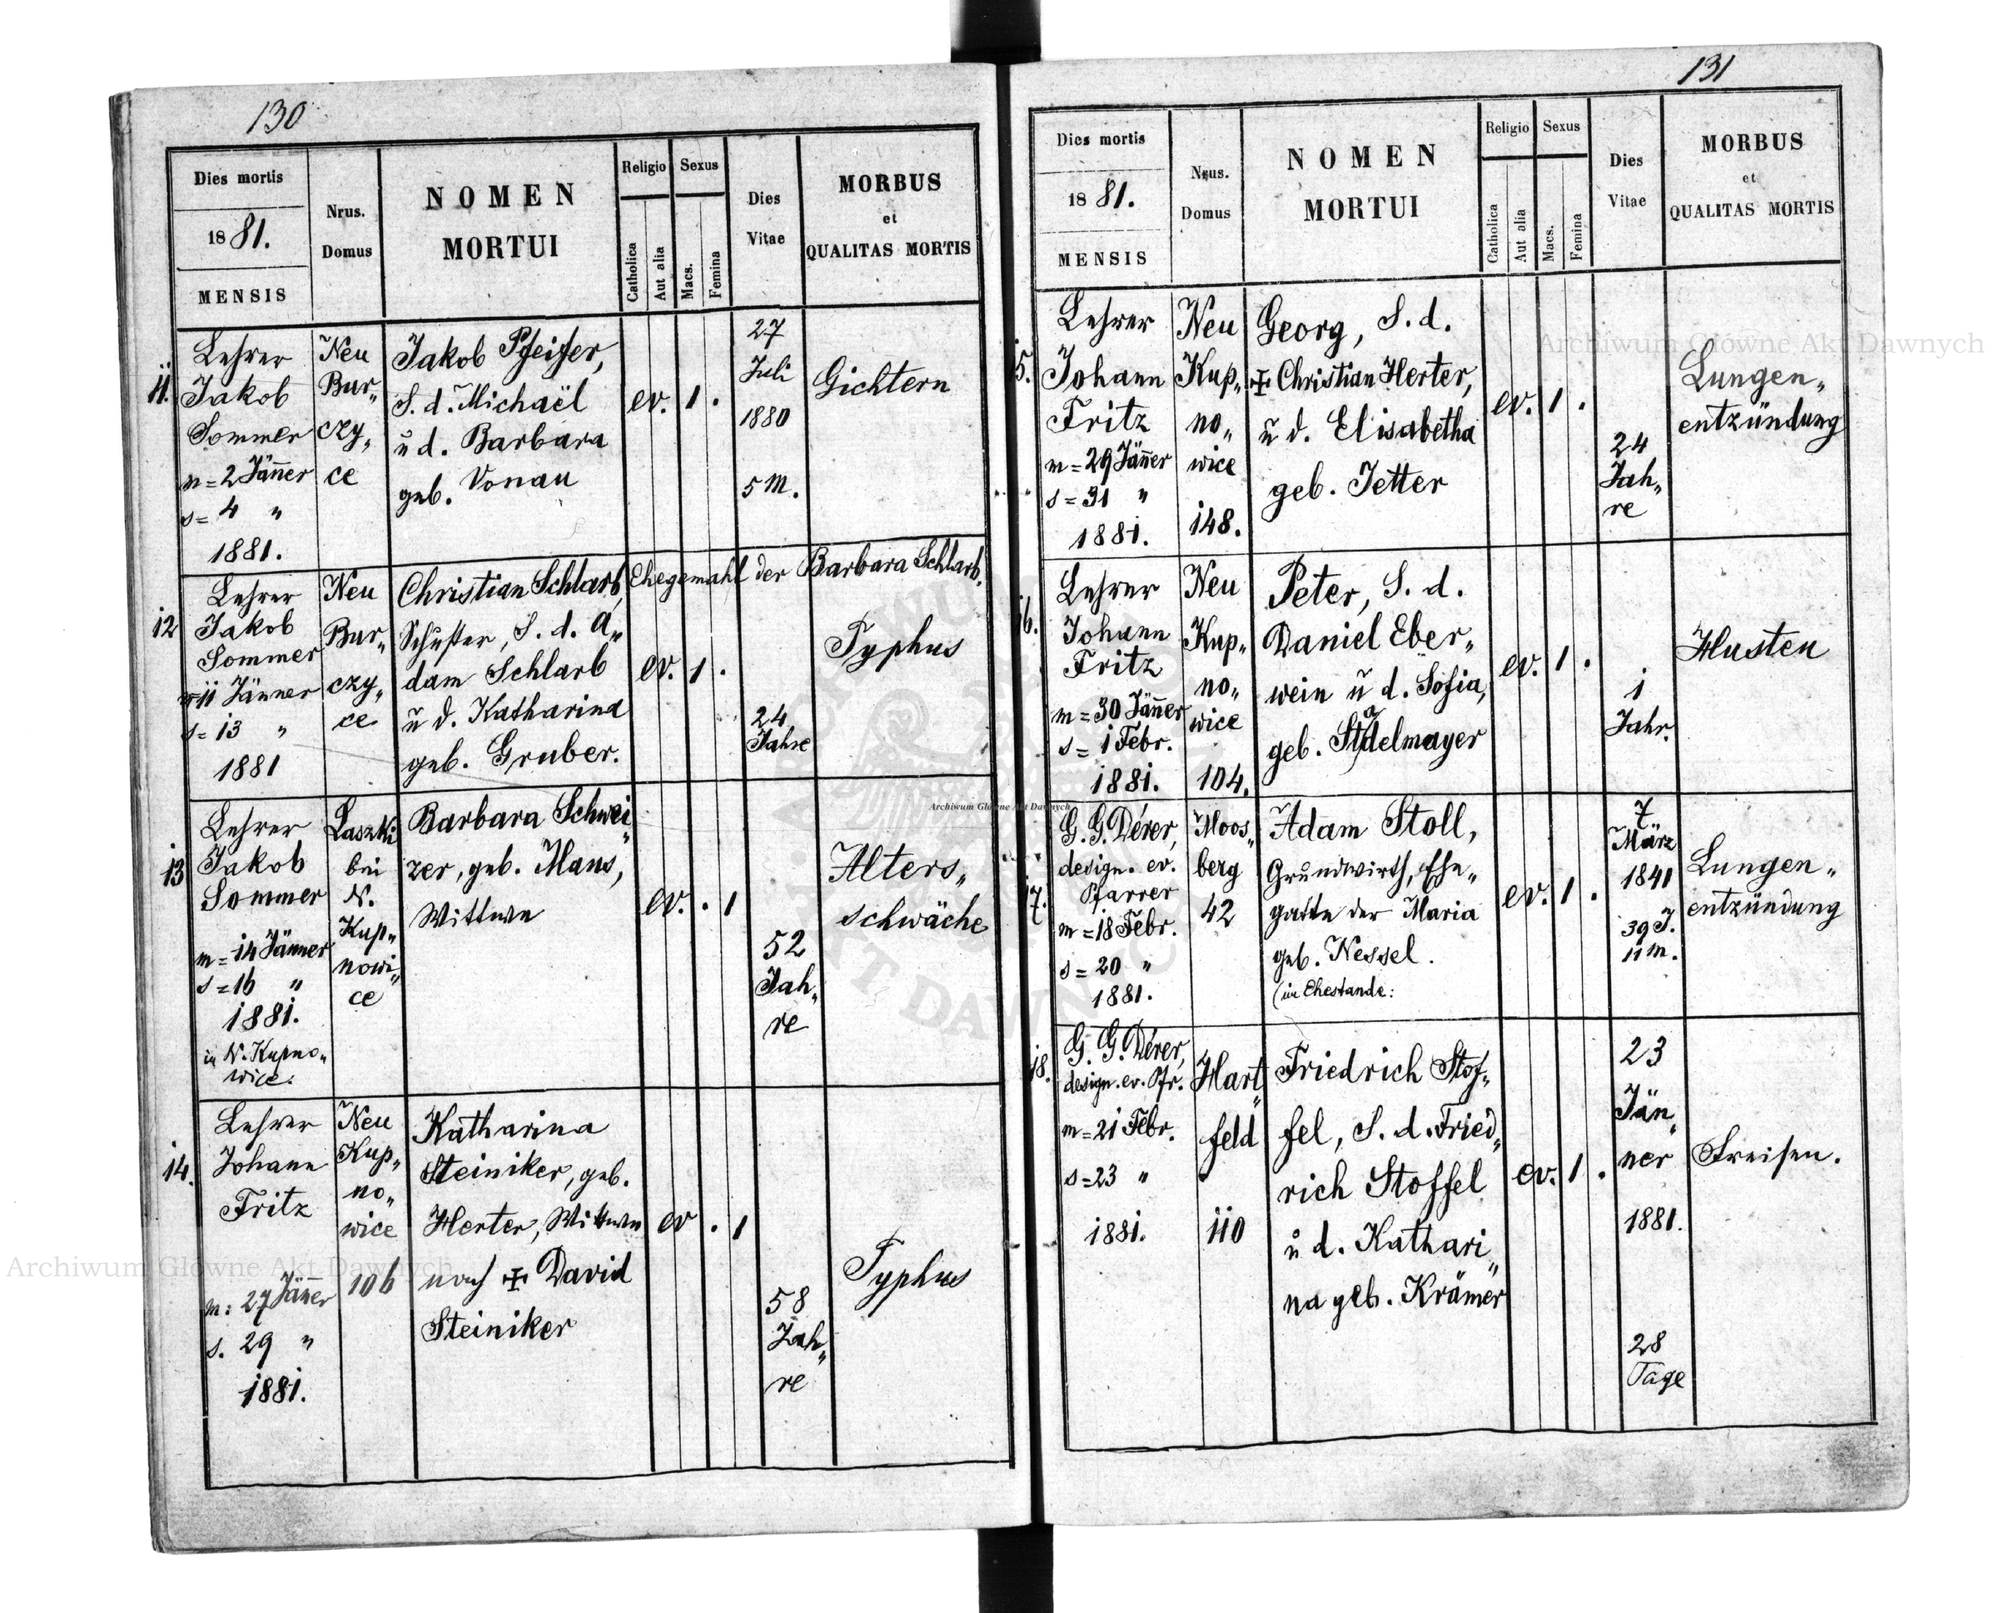 130
Dies mortis
1881.
MENSIS
Nrus.
Domus
NOMEN
MORTUI
Religio
Catholica
Aut alia
Sexus
Macs.
Femina
Dies
Vitae
MORBUS
et
QUALITAS MORTIS
11.
Lehrer
Jakob
Sommer
m = 2 Jän̄er
s = 4 "
1881.
Neu
Bur„
czy„
ce
Jakob Pfeifer,
S. d. Michaël
u d. Barbara
geb. Vonau
ev.
1
.
27
Juli
1880
5 M.
Gichtern
12
Lehrer
Jakob
Sommer
m 11 Jänner
s = 13 "
1881
Neu
Bur„
czy„
ce
Christian Schlarb, Ehegemahl der Barbara Schlarb.
Schuster, S. d. A„
dam Schlarb
u d. Katharina
geb. Gruber.
ev.
1
.
24
Jahre
Typhus
13
Lehrer
Jakob
Sommer
m = 14 Jänner
s = 16 "
1881.
in N. Kupno„
wice.
Laszki
bei
N.
Kup„
nowi„
ce
Barbara Schwei„
zer, geb. Mans,
Wittwe
ev.
.
1
52
Jah„
re
Alters„
schwäche
14.
Lehrer
Johann
Fritz
m: 27 Jän̄er
s. 29 "
1881.
Neu
Kup„
no„
wice
106
Katharina
Steiniker, geb.
Herter, Wittwe
nach ✠ David
Steiniker
ev
.
1
58
Jah„
re
Typhus
131
Dies mortis
1881.
MENSIS
Nrus.
Domus
NOMEN
MORTUI
Religio
Catholica
Aut alia
Sexus
Macs.
Femina
Dies
Vitae
MORBUS
et
QUALITAS MORTIS
15.
Lehrer
Johann
Fritz
m = 29 Jän̄er
s = 31 "
1881.
Neu
Kup„
no„
wice
148.
Georg, S. d.
✠ Christian Herter,
u d. Elisabetha
geb. Jetter
ev.
1
.
24
Jah„
re
Lungen„
entzündung
16.
Lehrer
Johann
Fritz
m = 30 Jän̄er
s = 1 Febr.
1881.
Neu
Kup„
no„
wice
104.
Peter, S. d.
Daniel Eber„
wein u d. Sofia,
geb. Stadelmayer
ev.
1
.
1
Jahr.
Husten
17.
G. G. Dérer,
design. ev.
Pfarrer
m = 18 Febr.
s = 20 "
1881.
Moos„
berg
42
Adam Stoll,
Grundwirth, Ehe„
gatte der Maria
geb. Nessel.
(in Ehestande:
ev.
1
.
7
März
1841
39 J.
11 M.
Lungen„
entzündung
18.
G. G. Dérer,
design. ev. Pfr.
m = 21 Febr.
s = 23 "
1881.
Hart„
feld
110
Friedrich Stof„
fel, S. d. Fried„
rich Stoffel
u d. Kathari„
na geb. Krämer
ev.
1
.
23
Jän„
ner
1881.
28
Tage
Freisen.
Archiwum Główne Akt Dawnych
Archiwum Główne Akt Dawnych
Archiwum Główne Akt Dawnych